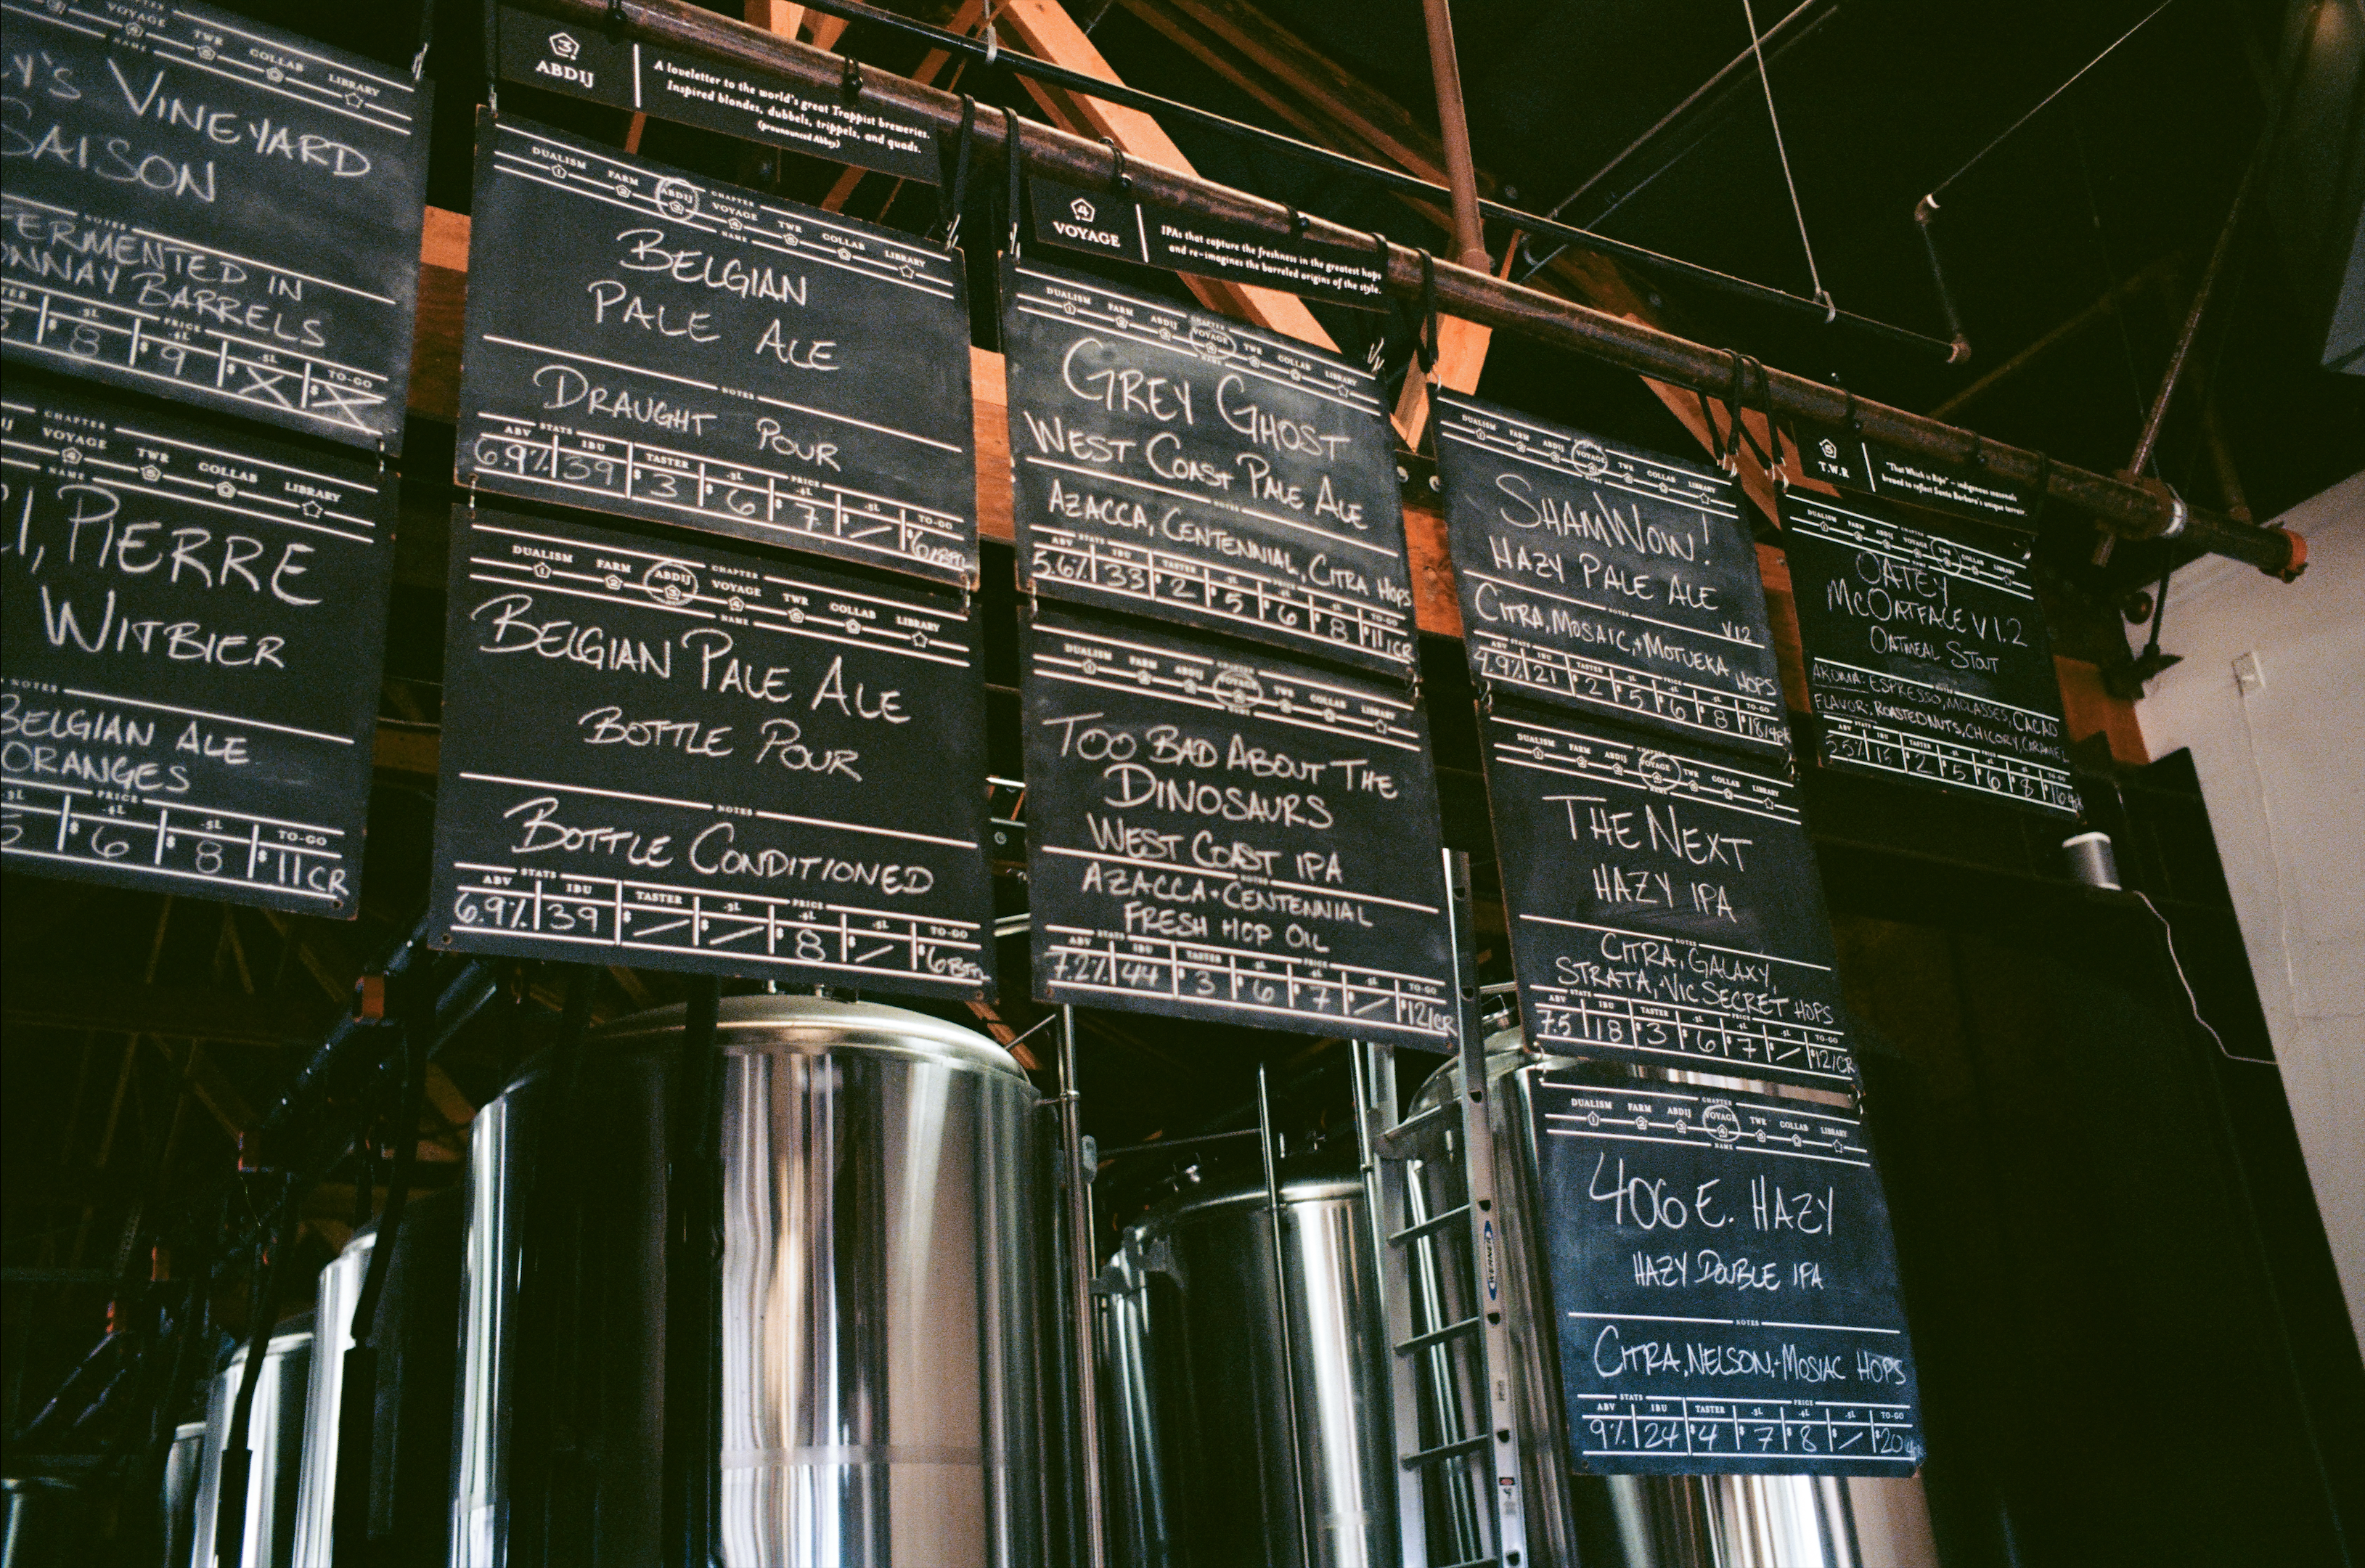 TWR COLLAB LIBRARY
NAME
Y'S VINEYARD
SAISON
NOTES
FERMENTED IN
ONNAY BARRELS
PRICE
.3L .4L .5L TO-GO
$8 $9 $X $X
CHAPTER
VOYAGE TWR COLLAB LIBRARY
NAME
PIERRE
WITBIER
NOTES
BELGIAN ALE
ORANGES
PRICE
.3L .4L .5L TO-GO
5 $6 $8 $11CR
3
ABDIJ
A loveletter to the world's great Trappist breweries.
Inspired blondes, dubbels, trippels, and quads.
(pronounced Abbey)
CHAPTER
DUALISM FARM ABDIJ VOYAGE TWR COLLAB LIBRARY
NAME
BELGIAN
PALE ALE
NOTES
DRAUGHT POUR
STATS PRICE
ABV IBU TASTER .3L .4L .5L TO-GO
6.9% 39 $3 $6 $7 $/ $6/BTL
CHAPTER
DUALISM FARM ABDIJ VOYAGE TWR COLLAB LIBRARY
NAME
BELGIAN PALE ALE
BOTTLE POUR
NOTES
BOTTLE CONDITIONED
STATS PRICE
ABV IBU TASTER .3L .4L .5L TO-GO
6.9% 39 $/ $/ $8 $/ $6BTL
4
VOYAGE
IPAs that capture the freshness in the greatest hops
and re-imagines the barreled origins of the style.
CHAPTER
DUALISM FARM ABDIJ VOYAGE TWR COLLAB LIBRARY
NAME
GREY GHOST
WEST COAST PALE ALE
NOTES
AZACCA, CENTENNIAL, CITRA HOPS
STATS PRICE
ABV IBU TASTER .3L .4L .5L TO-GO
5.6% 33 $2 $5 $6 $8 $11/CR
DUALISM FARM ABDIJ VOYAGE TWR COLLAB LIBRARY
NAME
TOO BAD ABOUT THE
DINOSAURS
WEST COAST IPA
NOTES
AZACCA + CENTENNIAL
FRESH HOP OIL
STATS PRICE
ABV IBU TASTER .3L .4L .5L TO-GO
7.2% 44 $3 $6 $7 $/ $12/CR
CHAPTER
DUALISM FARM ABDIJ VOYAGE TWR COLLAB LIBRARY
SHAMWOW!
HAZY PALE ALE
V1.2
NOTES
CITRA, MOSAIC, + MOTUEKA HOPS
STATS PRICE
ABV IBU TASTER .3L .4L .5L TO-GO
4.9% 21 $2 $5 $6 $8 $18/4PK
CHAPTER
DUALISM FARM ABDIJ VOYAGE TWR COLLAB LIBRARY
NAME
THE NEXT
HAZY IPA
NOTES
CITRA, GALAXY,
STRATA, + VIC SECRET HOPS
STATS PRICE
ABV IBU TASTER .3L .4L .5L TO-GO
7.5 18 $3 $6 $7 $/ $12/CR
CHAPTER
DUALISM FARM ABDIJ VOYAGE TWR COLLAB LIBRARY
NAME
406 E. HAZY
HAZY DOUBLE IPA
NOTES
CITRA, NELSON, + MOSIAC HOPS
STATS PRICE
ABV IBU TASTER .3L .4L .5L TO-GO
9% 24 $4 $7 $8 $/ $20
5
T.W.R
"That Which is Ripe" - indigenous seasonals
brewed to reflect Santa Barbara's unique terroir.
CHAPTER
DUALISM FARM ABDIJ VOYAGE TWR COLLAB LIBRARY
NAME
OATEY
MCOATFACE V 1.2
OATMEAL STOUT
AROMA: ESPRESSO, MOLASSES, CACAO
FLAVOR: ROASTED NUTS, CHICORY, CARAMEL
STATS
ABV IBU TASTER .3L .4L .5L TO-GO
5.5% 15 $2 $5 $6 $8 $16
WERNER